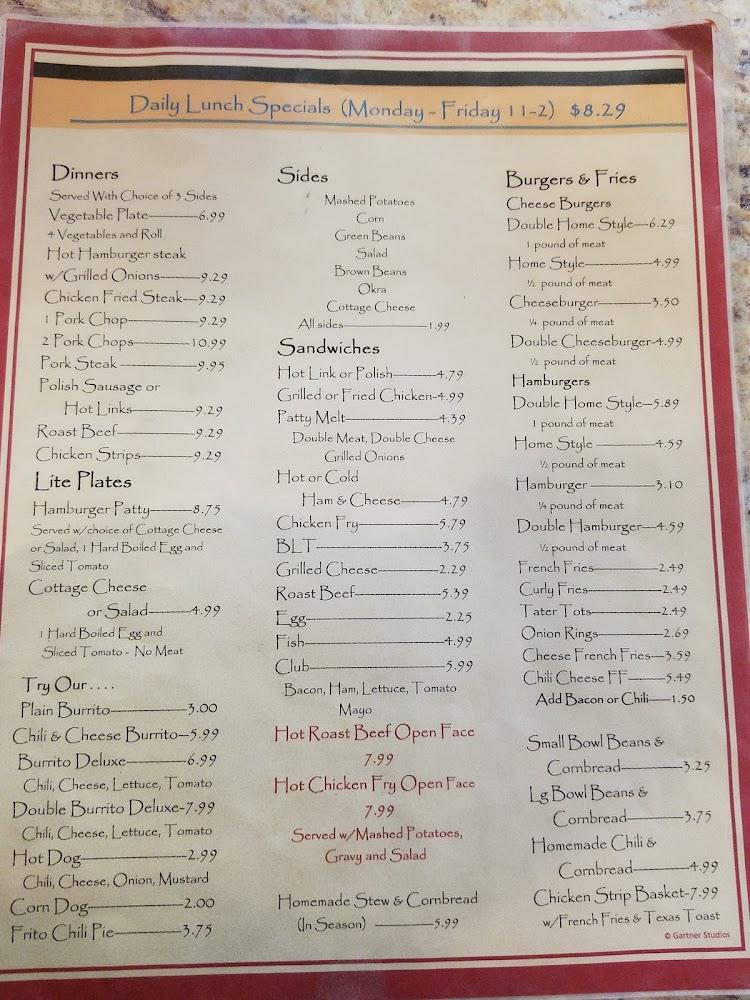 Daily Lunch Specials (Monday - Friday 11-2) $8.29
Dinners
Served With Choice of 3 Sides
Vegetable Plate-----6.99
4 Vegetables and Roll
Hot Hamburger steak
w/Grilled Onions-----9.29
Chicken Fried Steak---9.29
1 Pork Chop-----9.29
2 Pork Chops-----10.99
Pork Steak-----9.95
Polish Sausage or
Hot Links-----9.29
Roast Beef-----9.29
Chicken Strips-----9.29
Lite Plates
Hamburger Patty-----8.75
Served w/choice of Cottage Cheese
or Salad, 1 Hard Boiled Egg and
Sliced Tomato
Cottage Cheese
or Salad-----4.99
1 Hard Boiled Egg and
Sliced Tomato - No Meat
Try Our . . . .
Plain Burrito-----3.00
Chili & Cheese Burrito--5.99
Burrito Deluxe-----6.99
Chili, Cheese, Lettuce, Tomato
Double Burrito Deluxe-7.99
Chili, Cheese, Lettuce, Tomato
Hot Dog-----2.99
Chili, Cheese, Onion, Mustard
Corn Dog-----2.00
Frito Chili Pie-----3.75
Sides
Mashed Potatoes
Corn
Green Beans
Salad
Brown Beans
Okra
Cottage Cheese
All sides-----1.99
Sandwiches
Hot Link or Polish-----4.79
Grilled or Fried Chicken-4.99
Patty Melt-----4.39
Double Meat, Double Cheese
Grilled Onions
Hot or Cold
Ham & Cheese-----4.79
Chicken Fry-----5.79
BLT-----3.75
Grilled Cheese-----2.29
Roast Beef-----5.39
Egg-----2.25
Fish-----4.99
Club-----5.99
Bacon, Ham, Lettuce, Tomato
Mayo
Hot Roast Beef Open Face
7.99
Hot Chicken Fry Open Face
7.99
Served w/Mashed Potatoes,
Gravy and Salad
Homemade Stew & Cornbread
(In Season) -----5.99
Burgers & Fries
Cheese Burgers
Double Home Style--6.29
1 pound of meat
Home Style-----4.99
½ pound of meat
Cheeseburger-----3.50
¼ pound of meat
Double Cheeseburger-4.99
½ pound of meat
Hamburgers
Double Home Style--5.89
1 pound of meat
Home Style -----4.59
½ pound of meat
Hamburger -----3.10
¼ pound of meat
Double Hamburger--4.59
½ pound of meat
French Fries-----2.49
Curly Fries-----2.49
Tater Tots-----2.49
Onion Rings-----2.69
Cheese French Fries--3.59
Chili Cheese FF-----5.49
Add Bacon or Chili--1.50
Small Bowl Beans &
Cornbread-----3.25
Lg Bowl Beans &
Cornbread-----3.75
Homemade Chili &
Cornbread-----4.99
Chicken Strip Basket-7.99
w/French Fries & Texas Toast
© Gartner Studios